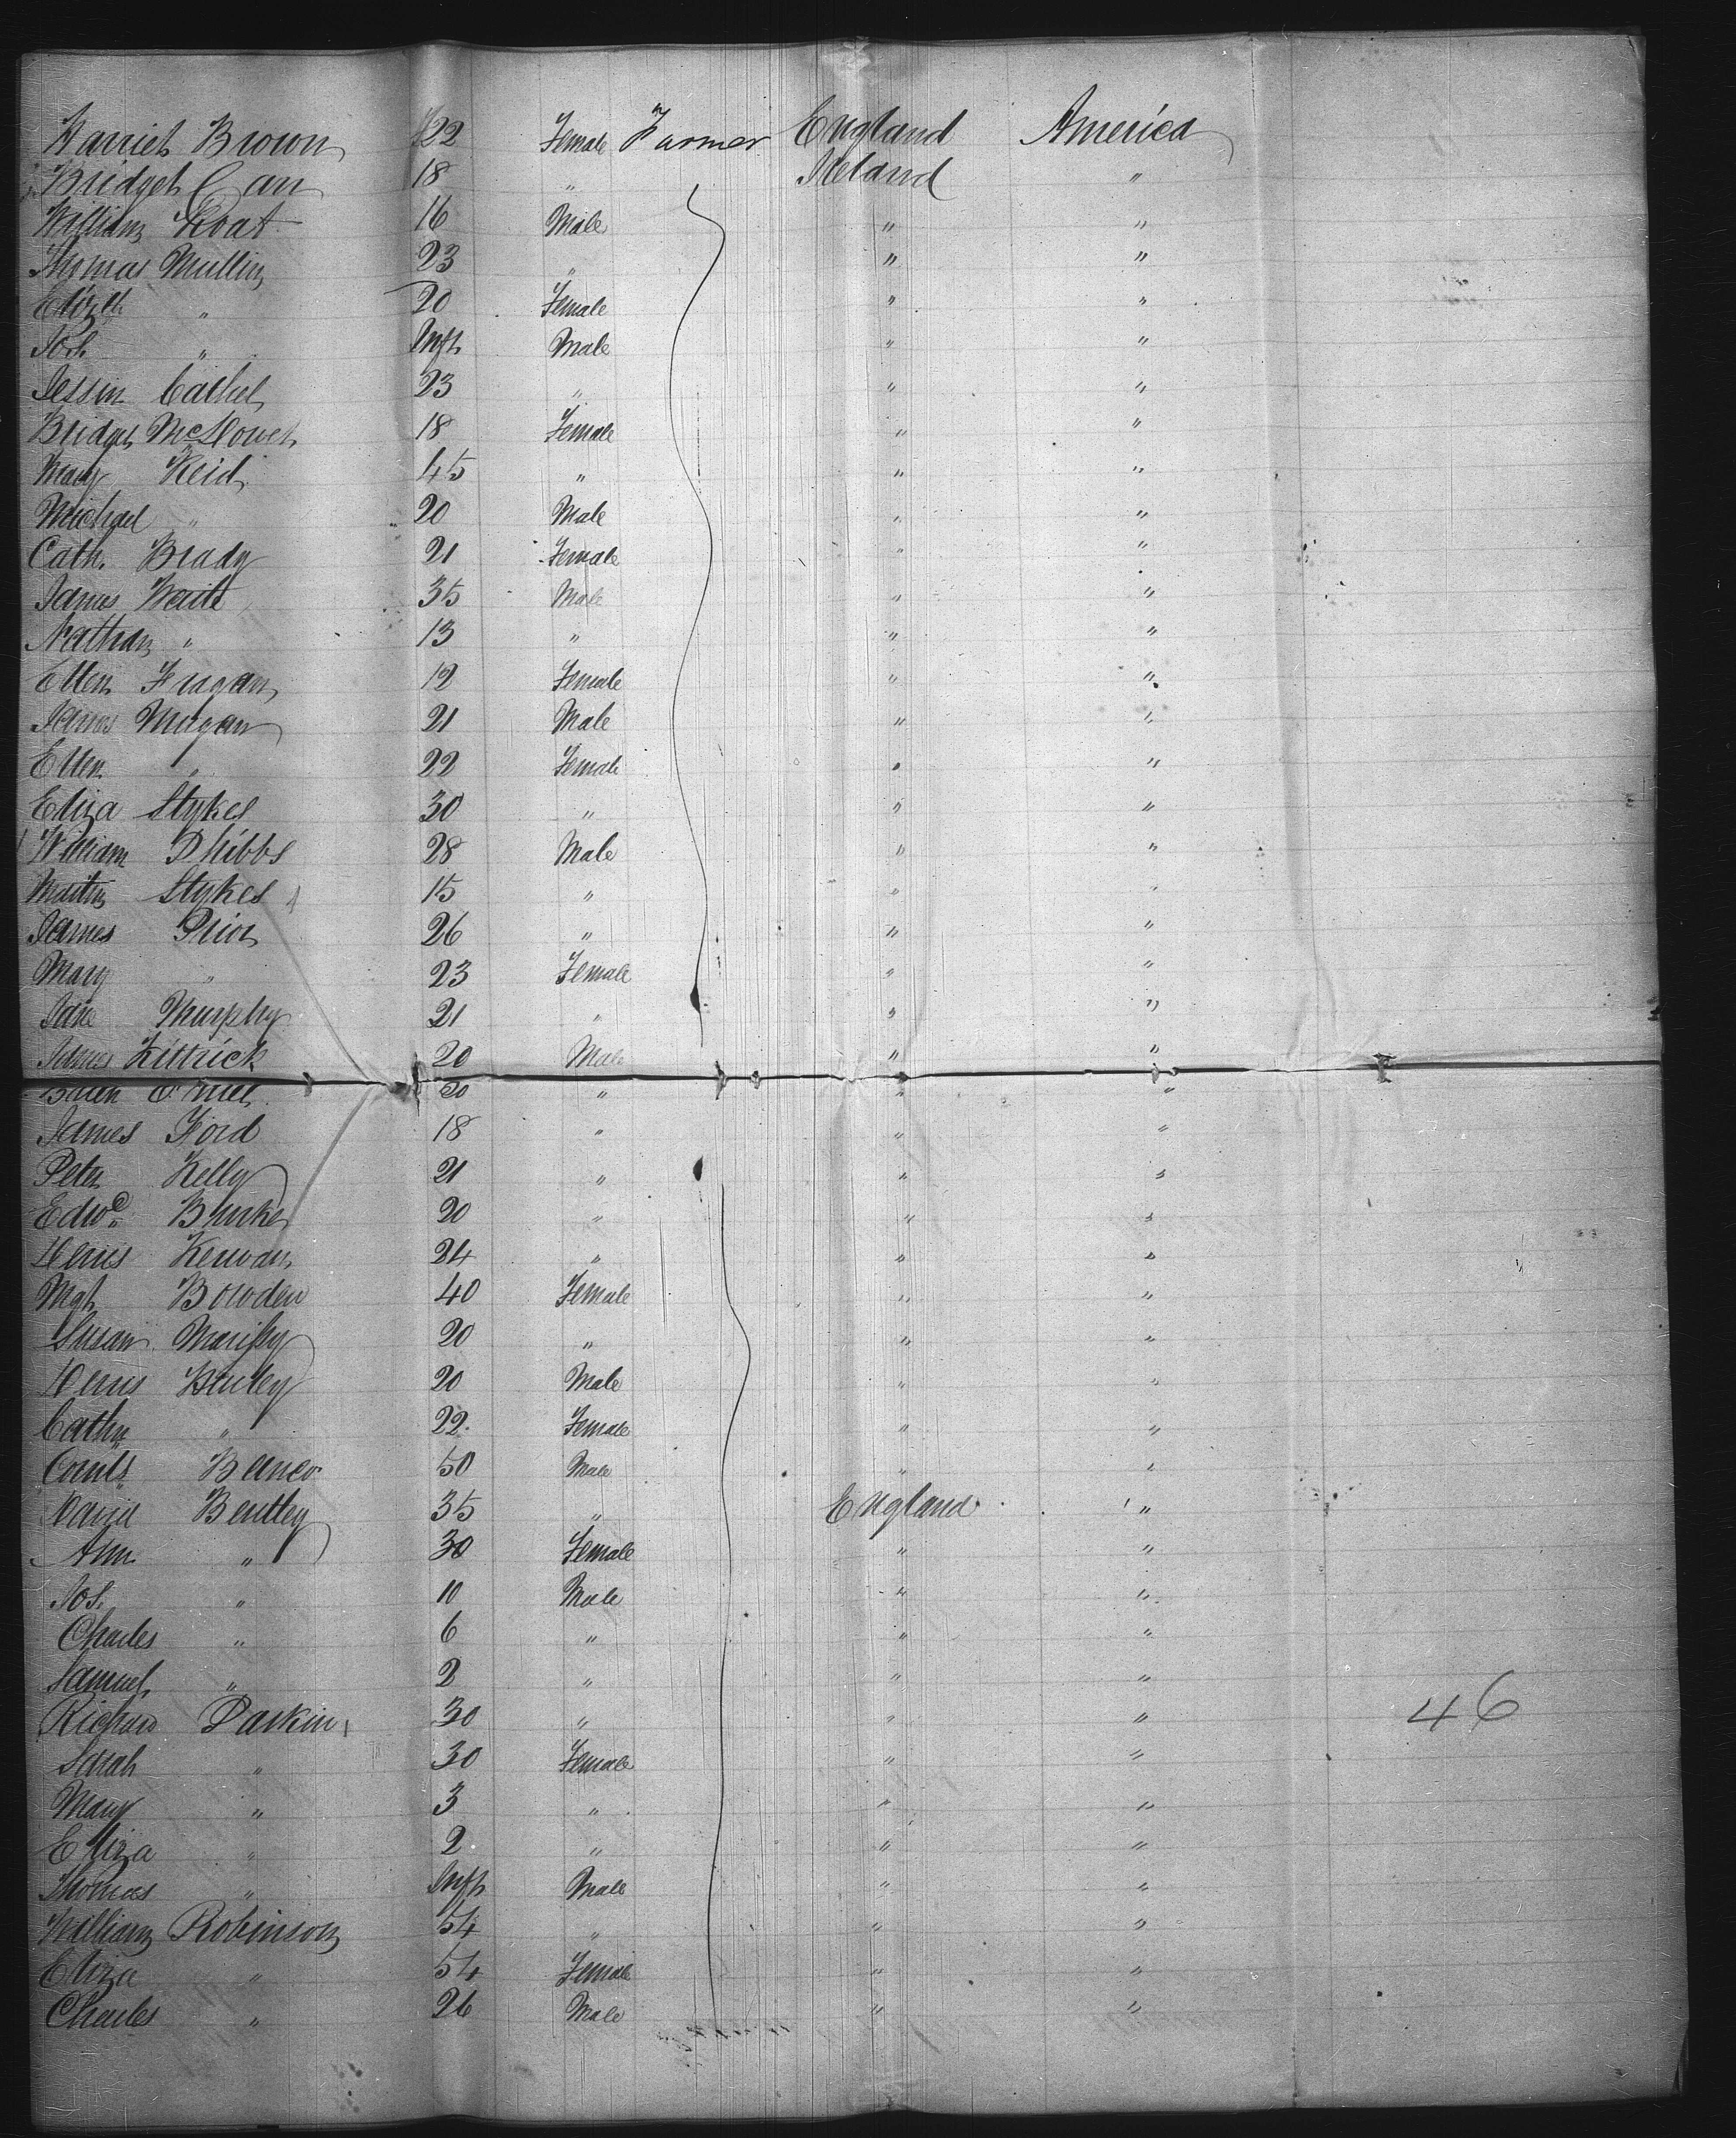 Harriet Brown 22 Female Farmer England America
Bridget Carr 18 " Ireland "
William 16 Male " "
Thomas Mullin 23 " " "
Elizth " 20 Female " "
Jos. " Inft Male " "
23 " " "
Bridget 18 Female " "
Mary Reid 45 " " "
Michael " 20 Male " "
Cath. Brady 21 Female " "
James Waite 35 Male " "
Nathan " 13 " " "
Ellen 12 Female " "
James 21 Male " "
Ellen " 22 Female " "
Eliza Stykes 30 " " "
William Phibbs 28 Male " "
Martin Stykes 15 " " "
James Prior 26 " " "
Mary " 23 Female " "
Jane Murphy 21 " " "
James Kittrick 20 Male " "
20 " " "
James Ford 18 " " "
Peter Kelly 21 " " "
Edwd Burke 20 " " "
Denis Kerwan 24 " " "
Mgt Bowden 40 Female " "
Susan 20 " " "
Denis 20 Male " "
Cathn " 22 Female " "
50 Male " "
David Bentley 35 " England "
Ann " 30 Female " "
Jos. " 10 Male " "
Charles " 6 " " "
Samuel " 2 " " "
Richard Parkin 30 " " " 46
Sarah " 30 Female " "
Mary " 3 " " "
Eliza " 2 " " "
Thomas " Inft Male " "
William Robinson 54 " " "
Eliza " 54 Female " "
Charles " 26 Male " "